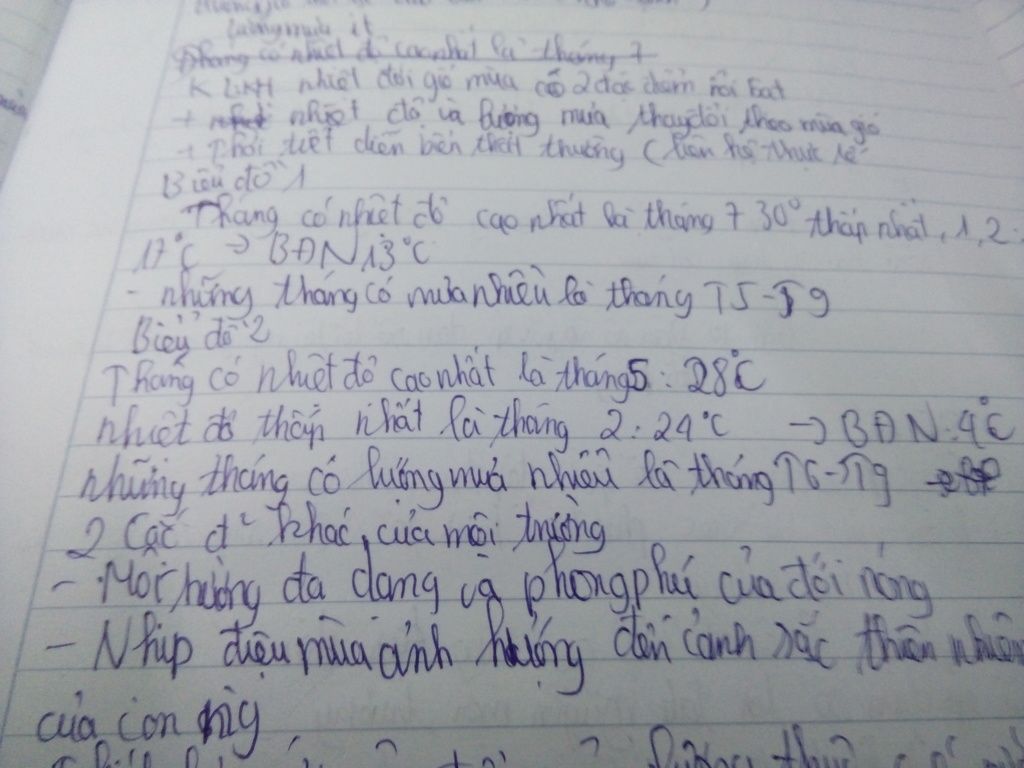 lượng mưa ít
Tháng có nhiệt độ cao nhất là tháng 7
nhiệt đới gió mùa có 2 đặc điểm nổi bật
+ nhiệt độ và lượng mưa thay đổi theo mùa gió
+ Thời tiết diễn biến thất thường (liên hệ thực tế
Biểu đồ 1
Tháng có nhiệt độ cao nhất là tháng 7 30° thấp nhất, 1, 2:
17°C → BĐN 13°C
- những tháng có mưa nhiều là tháng T5-T9
Biểu đồ 2
Tháng có nhiệt độ cao nhất là tháng 5: 28°C
nhiệt độ thấp nhất là tháng 2: 24°C → BĐN: 4°C
những tháng có lượng mưa nhiều là tháng T6-T9
2 Các đ² khác của môi trường
- Môi trường đa dạng và phong phú của đới nóng
- Nhịp điệu mùa ảnh hưởng đến cảnh sắc thiên nhiên
của con ng